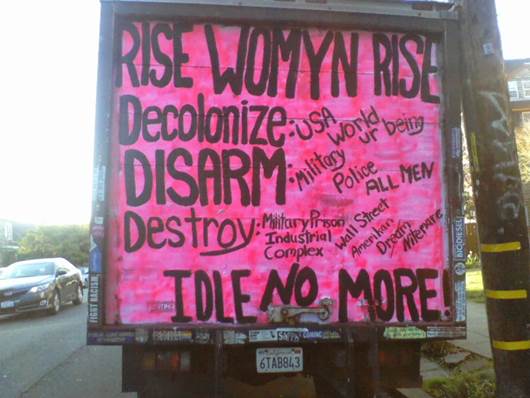 RISE WOMYN RISE
Decolonize: USA World ur being
DISARM: Military Police ALL MEN
Destroy: Military Prison Industrial Complex Wall Street Amerikan Dream Nitemare
IDLE NO MORE!
FIGHT RACISM
BIODIESEL
6TAB843